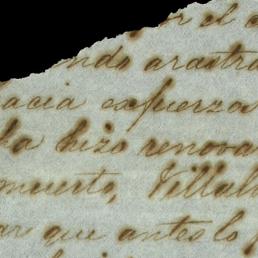 por el
ndo arastra
acia esfuerza
ha hizo renova
muerto, Villal
ar que antes lo